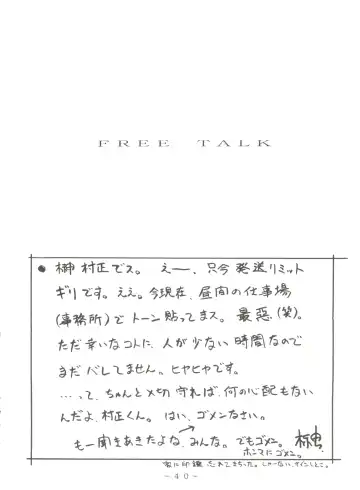 FREE TALK
● 榊 村正でス。 えー、只今 発送リミット
ギリです。ええ。今現在、昼間の仕事場
(事務所)で トーン貼ってまス。 最悪(笑)。
ただ幸いなコトに、人が少ない時間なので
まだバレてません。ヒヤヒヤです。
…って、ちゃんと〆切守れば、何の心配もない
んだよ、村正くん。 はい、ゴメンなさい。
も一聞きあきたよね、みんな。でもゴメン。
ホンマにゴメン。
忘れてまった。しゃーない、サインしとこ。
－40－